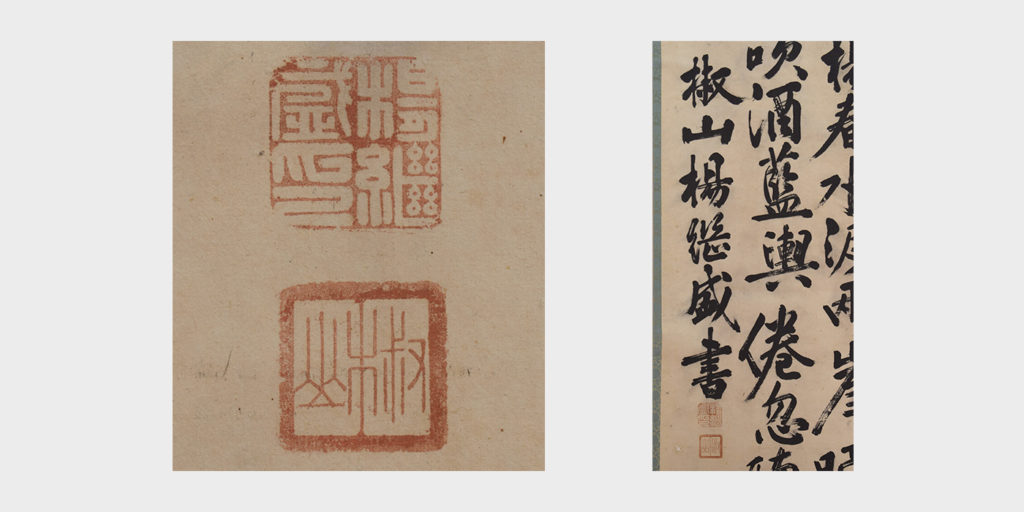 楊繼
盛印
椒山
楊春水 兩崖
吹酒藍輿倦忽
椒山楊繼盛書